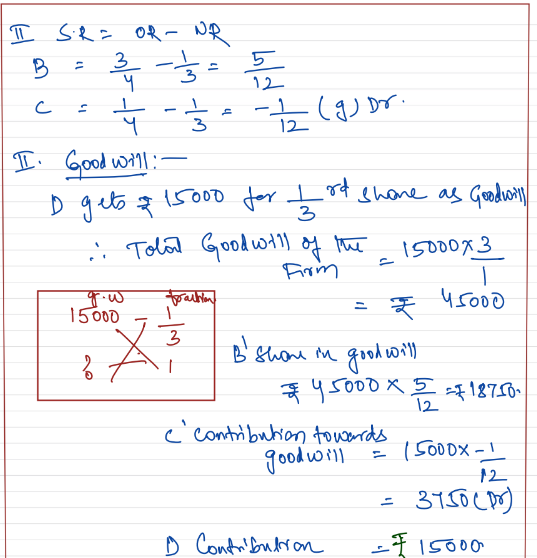 II S.R = OR - NR
B = 3/4 - 1/3 = 5/12
C = 1/4 - 1/3 = -1/12 (g) Dr.
II. Goodwill:-
D gets ₹ 15000 for 1/3 rd share as Goodwill
∴ Total Goodwill of the Firm = 15000 x 3/1
= ₹ 45000
g.w fraction
15000 - 1/3
? - 1
B' share in goodwill
₹ 45000 x 5/12 = ₹ 18750.
C' contribution towards goodwill = 15000 x -1/12
= 3750 (Dr)
D Contribution = ₹ 15000.